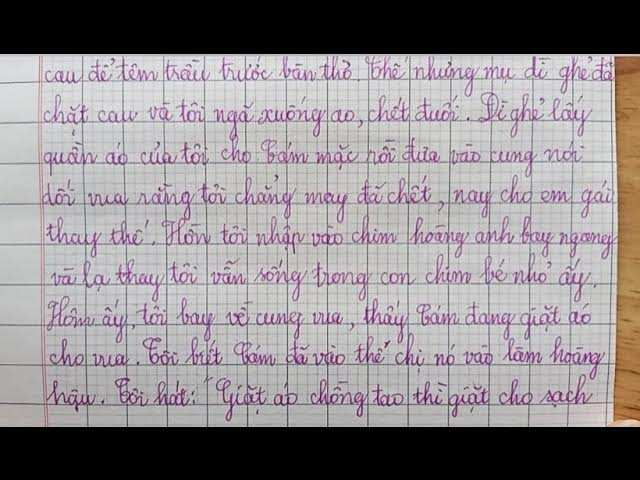 cau để têm trầu trước bàn thờ. Thế nhưng mụ dì ghẻ đã
chặt cau và tôi ngã xuống ao, chết đuối. Dì ghẻ lấy
quần áo của tôi cho Cám mặc rồi đưa vào cung nói
dối vua rằng tôi chẳng may đã chết, nay cho em gái
thay thế. Hồn tôi nhập vào chim hoàng anh bay ngang
và lạ thay tôi vẫn sống trong con chim bé nhỏ ấy.
Hôm ấy, tôi bay về cung vua, thấy Cám đang giặt áo
cho vua. Tôi biết Cám đã vào thế chị nó vào làm hoàng
hậu. Tôi hát: "Giặt áo chồng tao thì giặt cho sạch